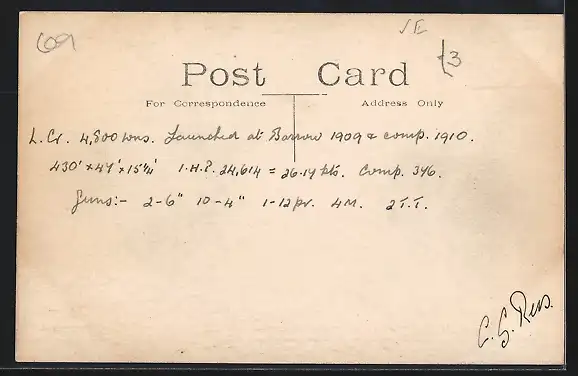 69
Post Card
For Correspondence
Address Only
3
L. Cr. 4,800 tons. Launched at Barrow 1909 & comp. 1910.
430' × 47' × 15¼' I.H.P. 24,614 = 26.14 kts. Comp. 376.
Guns:- 2-6" 10-4" 1-12pr. 4M. 2 T.T.